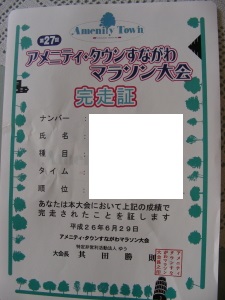 Amenity Town
第27回
アメニティ・タウンすながわ
マラソン大会
完走証
ナンバー
氏名
種目
タイム
順位
あなたは本大会において上記の成績で
完走されたことを証します
平成26年6月29日
アメニティ・タウンすながわマラソン大会
特定非営利活動法人 ゆう
大会長 其田勝則